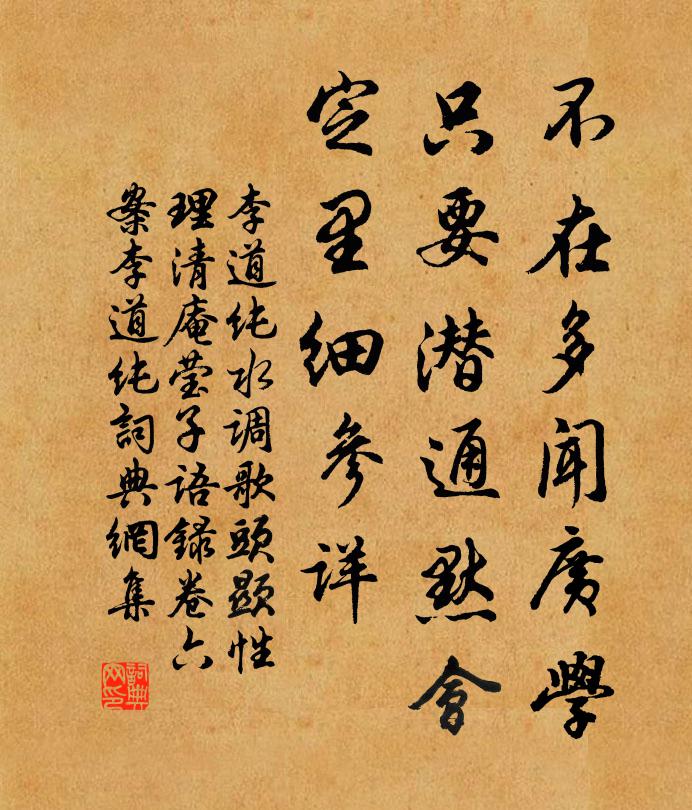 不在多闻广學
只要潜通默會
定里细參详
李道纯水调歌頭顯性
理清庵莹子语録卷六
案李道纯詞典網集
詞典网印